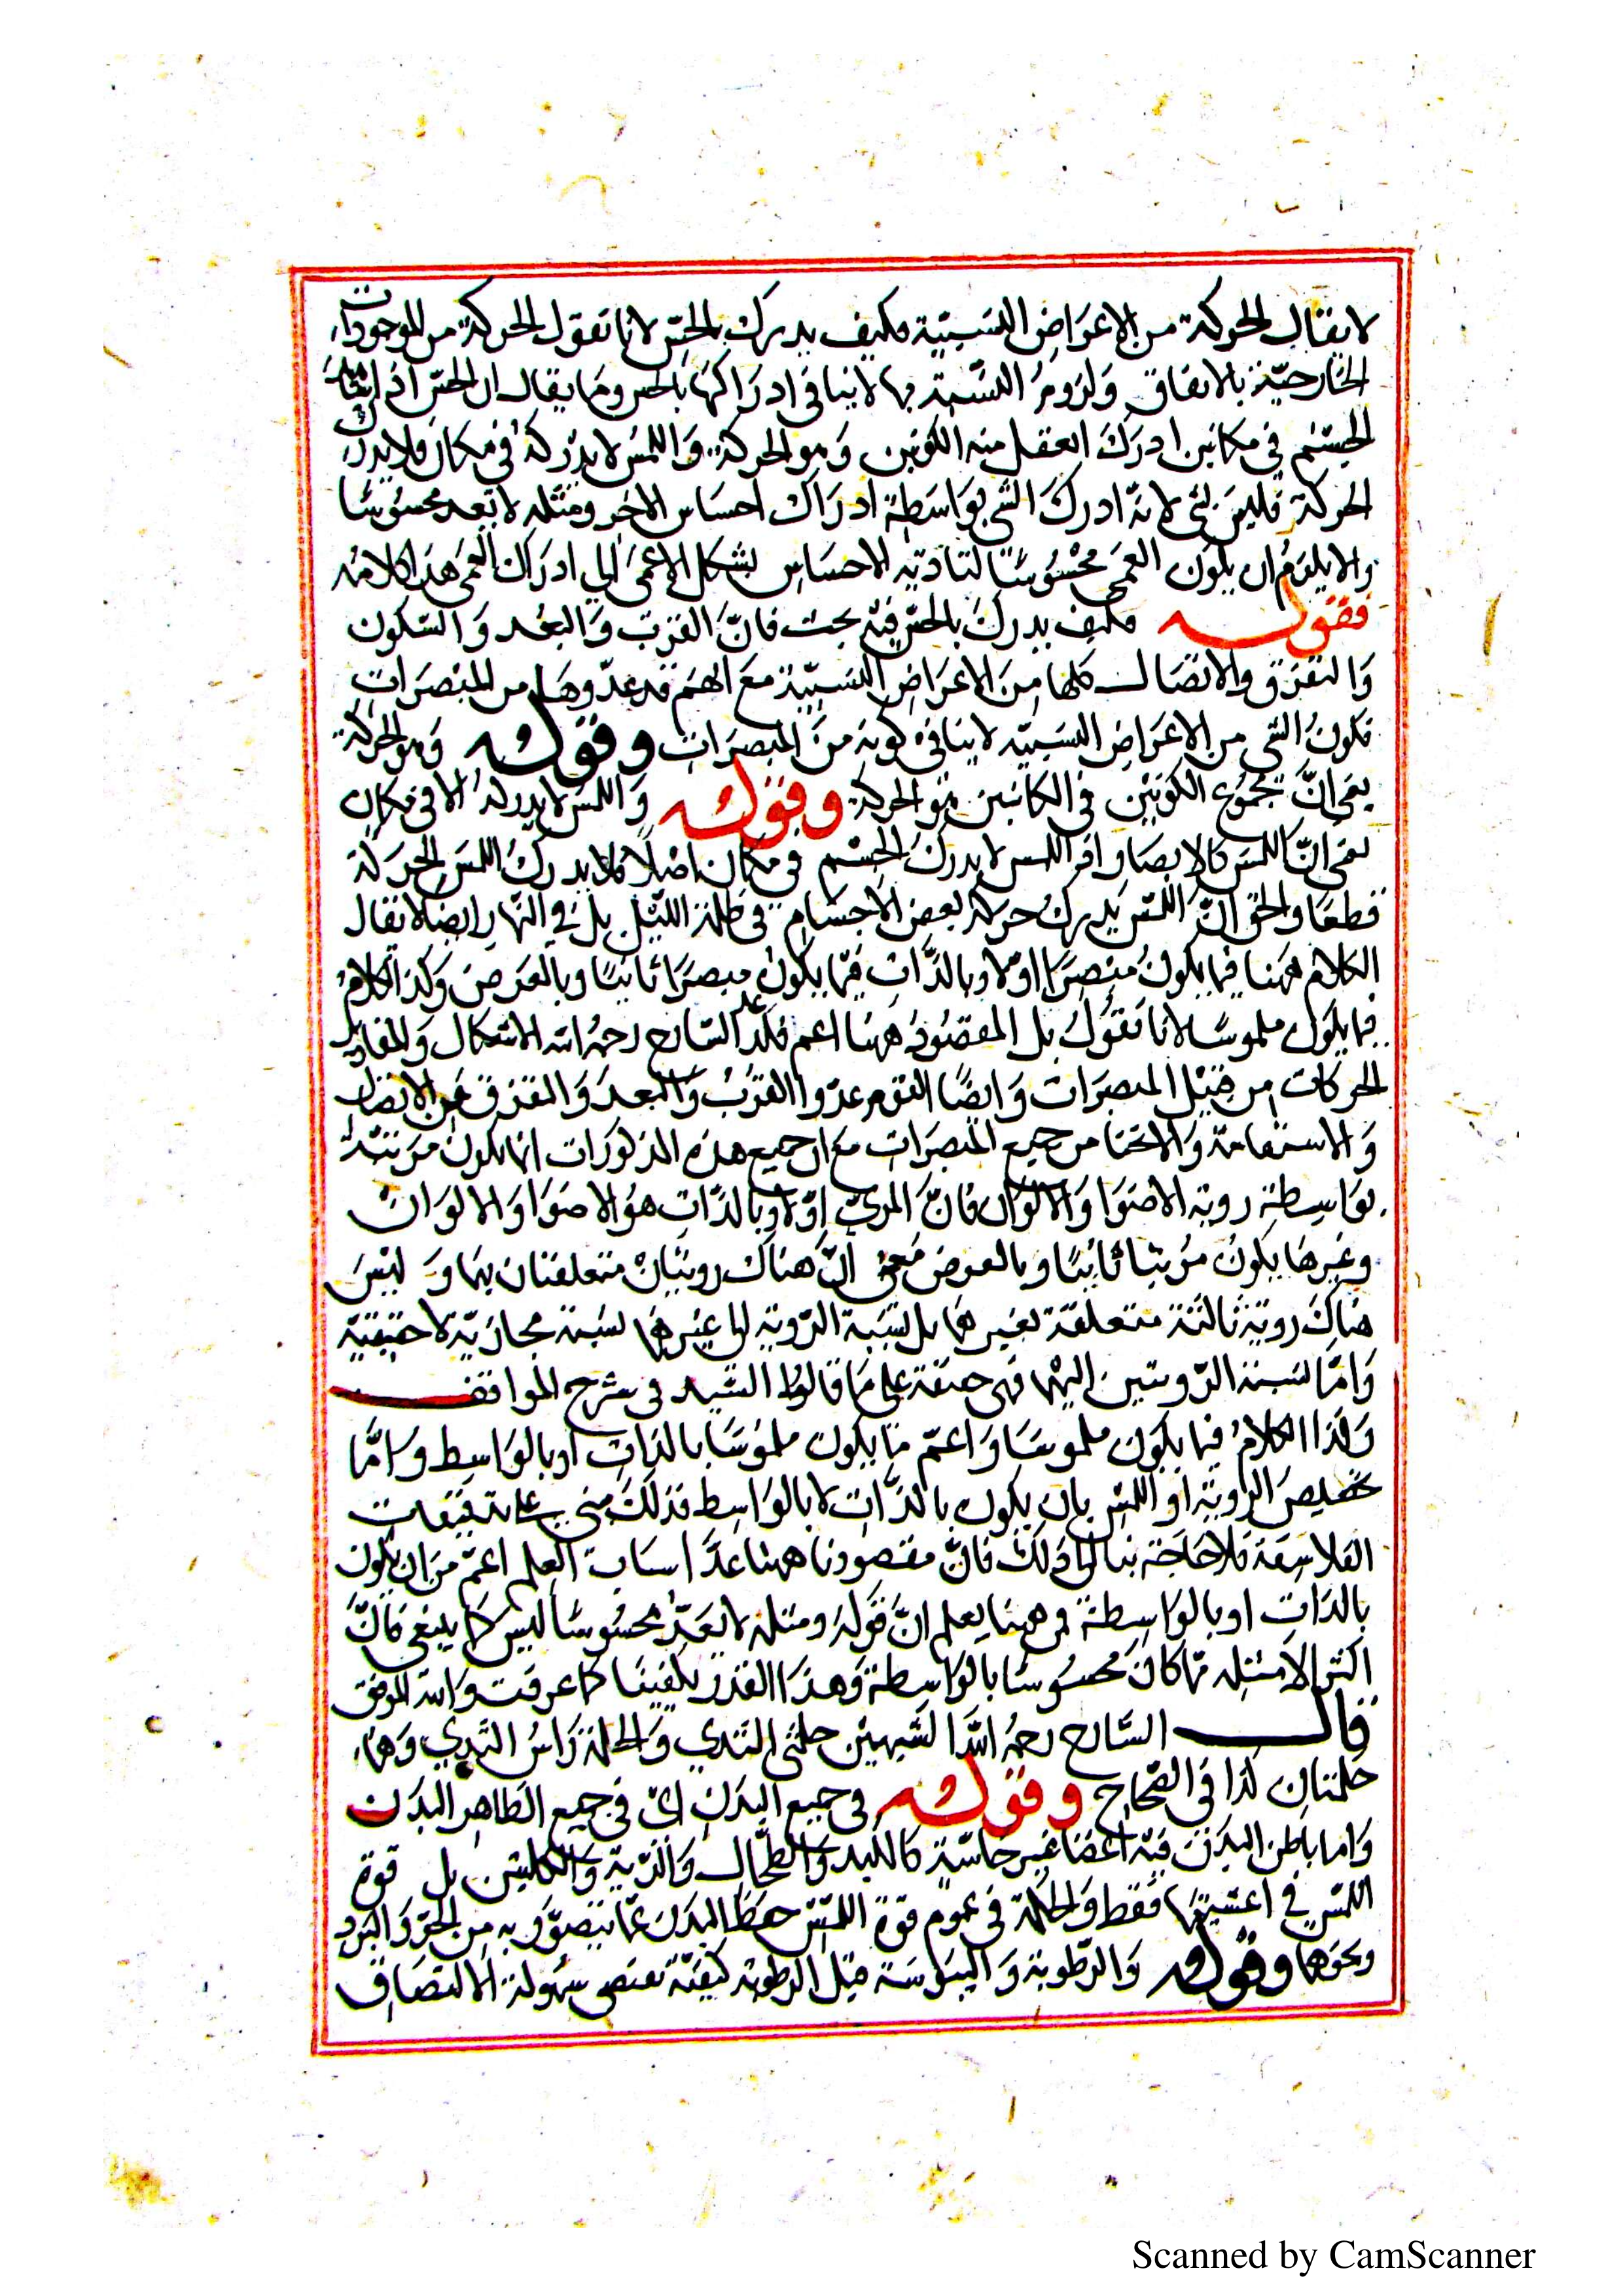 لا يقال الحركة من الاعراض النسبية فكيف يدرك بالحس لانا نقول الحركة من الموجودات
الخارجية بالاتفاق ولزوم النسبة بها لا ينافي ادراكها بالحس وما يقال ان الحس اذا شاهد
الجسم في مكانين ادرك العقل منه الكونين وهو الحركة واللمس لا يدركه في مكان فلا يدرك
الحركة فليس بشئ لانه ادرك الشئ بواسطة ادراك احساس الاخر ومثله لا يعد محسوسا
والا يلزم ان يكون العمى محسوسا لتاديه الاحساس بشكل الاعمى الى ادراك العمى هذا كلامه
فقوله فكيف يدرك بالحس فيه بحث فان القرب والبعد والسكون
والتفرق والاتصال كلها من الاعراض النسبية مع انهم قد عدوها من المبصرات
فكون الشئ من الاعراض النسبيه لا ينافي كونه من المبصرات وقوله وهو الحركة
يعني ان مجموع الكونين في المكانين هو الحركة وقوله واللمس لا يدركه الا في مكان
يعني ان اللمس كالابصار اذ اللمس لا يدرك الجسم في مكان اصلا فلا يدرك اللمس الحركة
قطعا والحق ان اللمس يدرك حركة بعض الاجسام في ظلمة الليل بل في النهار ايضا لا يقال
الكلام ههنا فيما يكون مبصرا اولا وبالذات فيما يكون مبصرا ثانيا وبالعرض وكذا الكلام
فيما يكون ملموسا لانا نقول بل المقصود ههنا اعم فلذا عد الشارح رحمه الله الاشكال والمقادير
الحركات من قبيل المبصرات وايضا القوم عدوا القرب والبعد والتفرق والاتصال
والاستقامة والانحنا من جميع المبصرات مع ان جميع هذه المذكورات انما يكون مرئية
بواسطة روية الاضوا والالوان فان المرئي اولا وبالذات هو الاضوا والالوان
وغيرها يكون مرئيا ثانيا وبالعرض بمعنى ان هناك رويتان متعلقتان بهما وليس
هناك روية ثالثة متعلقة بغيرها بل نسبة الروية الى غيرها نسبة مجازية لا حقيقية
واما نسبة الرويتين اليهما فهي حقيقة على ما قاله السيد في شرح المواقف
وكذا الكلام فيما يكون ملموسا واعم ما يكون ملموسا بالذات او بالواسط واما
تخصيص الروية او اللمس بان يكون بالذات لا بالواسط فذلك مبني على تدقيقات
الفلاسفة فلا حاجة بنا الى ذلك فان مقصودنا ههنا عد اسباب العلم اعم من ان يكون
بالذات او بالواسطة ومن ههنا يعلم ان قوله ومثله لا يعد محسوسا ليس كما ينبغي فان
اكثر الامثله مما كان محسوسا بالواسطة وهذا القدر يكفينا كما عرفت والله الموفق
قال الشارح رحمه الله الشبيهين حلمتي الثدي والحلمة راس الثدي وهما
حلمتان كذا في الصحاح وقوله في جميع البدن اي في جميع الظاهر البدن
واما باطن البدن فيه اعضا غير حاسة كالكبد والطحال والرية والكليتين بل قوة
اللمس في اغشيتها فقط والحكمة في عموم قوة اللمس حفظ البدن عما يتصور به من الحر والبرد
ونحوها وقوله والرطوبة واليبوسة قيل الرطوبة كيفية تقتضي سهولة الالتصاق
Scanned by CamScanner